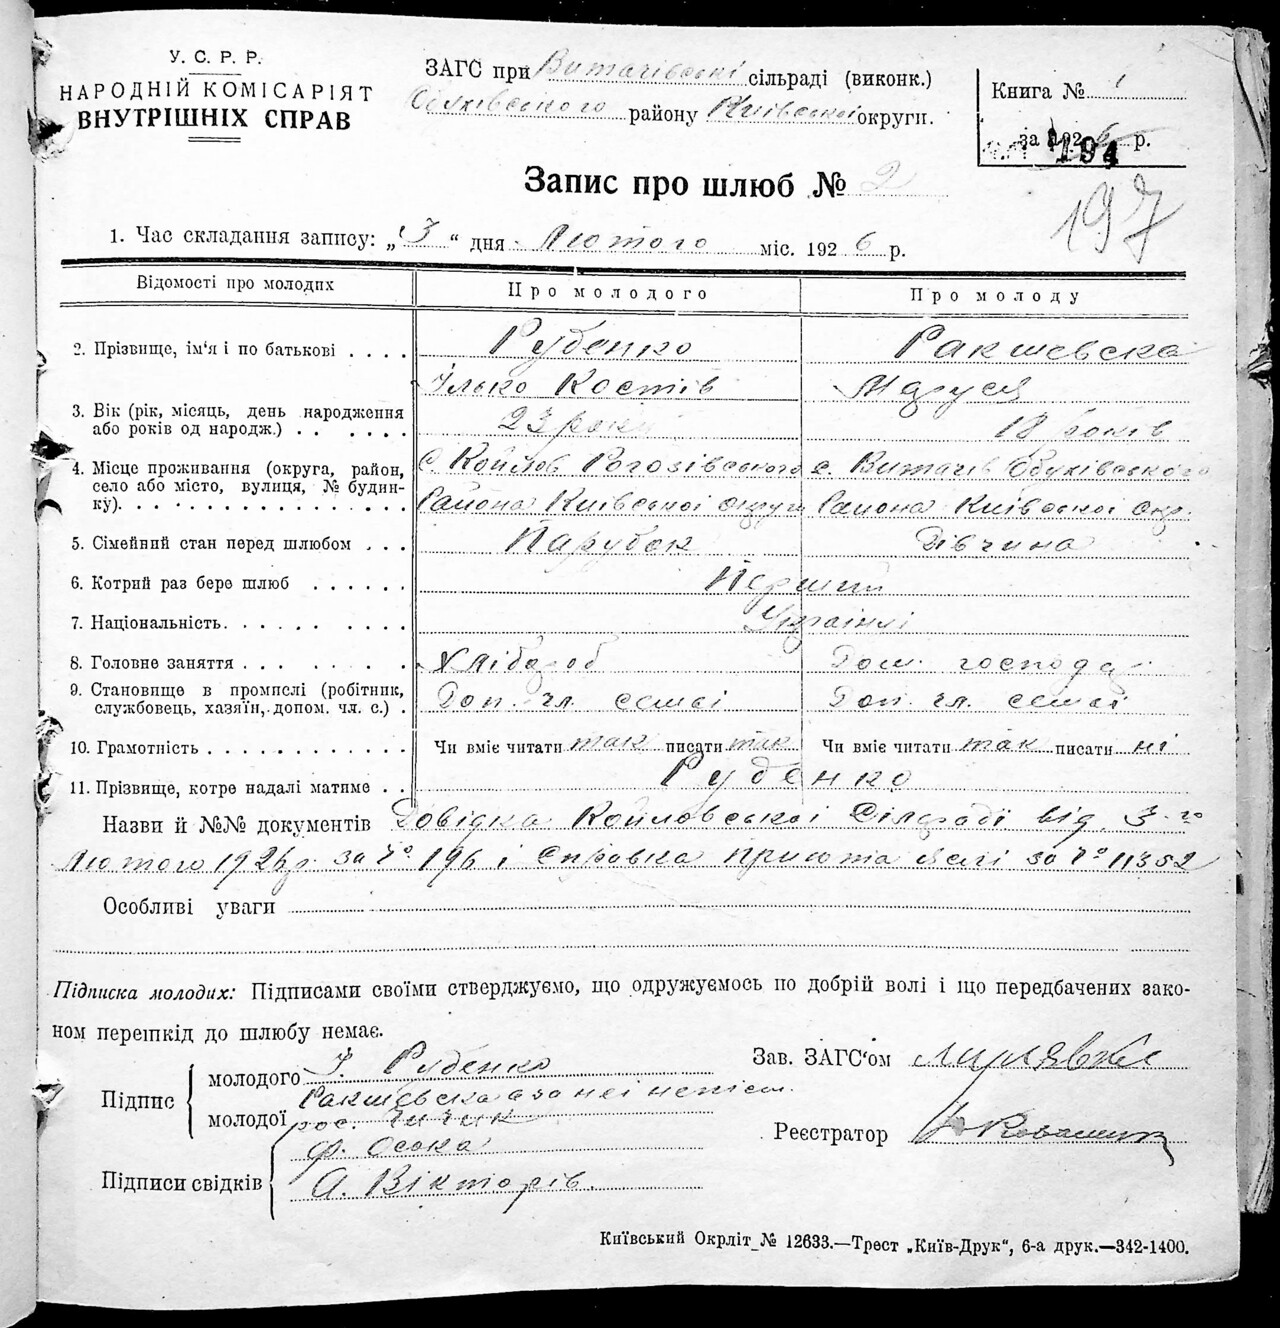 У. С. Р. Р.
НАРОДНІЙ КОМІСАРІЯТ
ВНУТРІШНІХ СПРАВ
ЗАГС при Витачівські сільраді (виконк.)
Обухівського району Київської округи.
Книга № 1
за 192 6 р.
194
197
Запис про шлюб № 2
1. Час складання запису: „ 3 “ дня Лютого міс. 192 6 р.
Відомості про молодих
Про молодого
Про молоду
2. Прізвище, ім'я і по батькові
Рубенко
Ракшевска
Ілько Костів
Маруся
3. Вік (рік, місяць, день народження
або років од народж.)
23 роки
18 років
4. Місце проживання (округа, район,
село або місто, вулиця, № будин-
ку).
с. Койлов Рогозівського
с. Витачів Обухівського
Района Київської округи
Района Київської окр.
5. Сімейний стан перед шлюбом
Парубок
Дівчина
6. Котрий раз бере шлюб
Перший
7. Національність.
Українці
8. Головне заняття
Хлібороб
Дом. господар
9. Становище в промислі (робітник,
службовець, хазяїн, допом. чл. с.)
Доп. чл. семї
Доп. чл. семї
10. Грамотність
Чи вміє читати так писати так
Чи вміє читати так писати ні
11. Прізвище, котре надалі матиме
Рубенко
Назви й №№ документів Довідка Койловської Сілради від 3-го
Лютого 1926 р. за № 196 і Справка за № 11352
Особливі уваги
Підписка молодих: Підписами своїми стверджуємо, що одружуємось по добрій волі і що передбачених зако-
ном перешкід до шлюбу немає.
Підпис
молодого І. Рубенко
молодої Ракшевска а за неї непісм.
рос. Чичик
Підписи свідків
Ф. Осока
А. Вікторів.
Зав. ЗАГС'ом
Реєстратор
Київський Окрліт № 12633.—Трест „Київ-Друк“, 6-а друк.—342-1400.